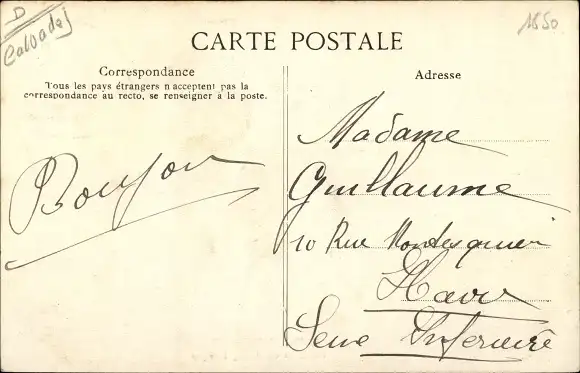 D
Calvados
1850
CARTE POSTALE
Correspondance
Tous les pays étrangers n'acceptent pas la
correspondance au recto, se renseigner à la poste.
Adresse
Madame
Guillaume
10 Rue Montesquieu
Havre
Seine Inferieure